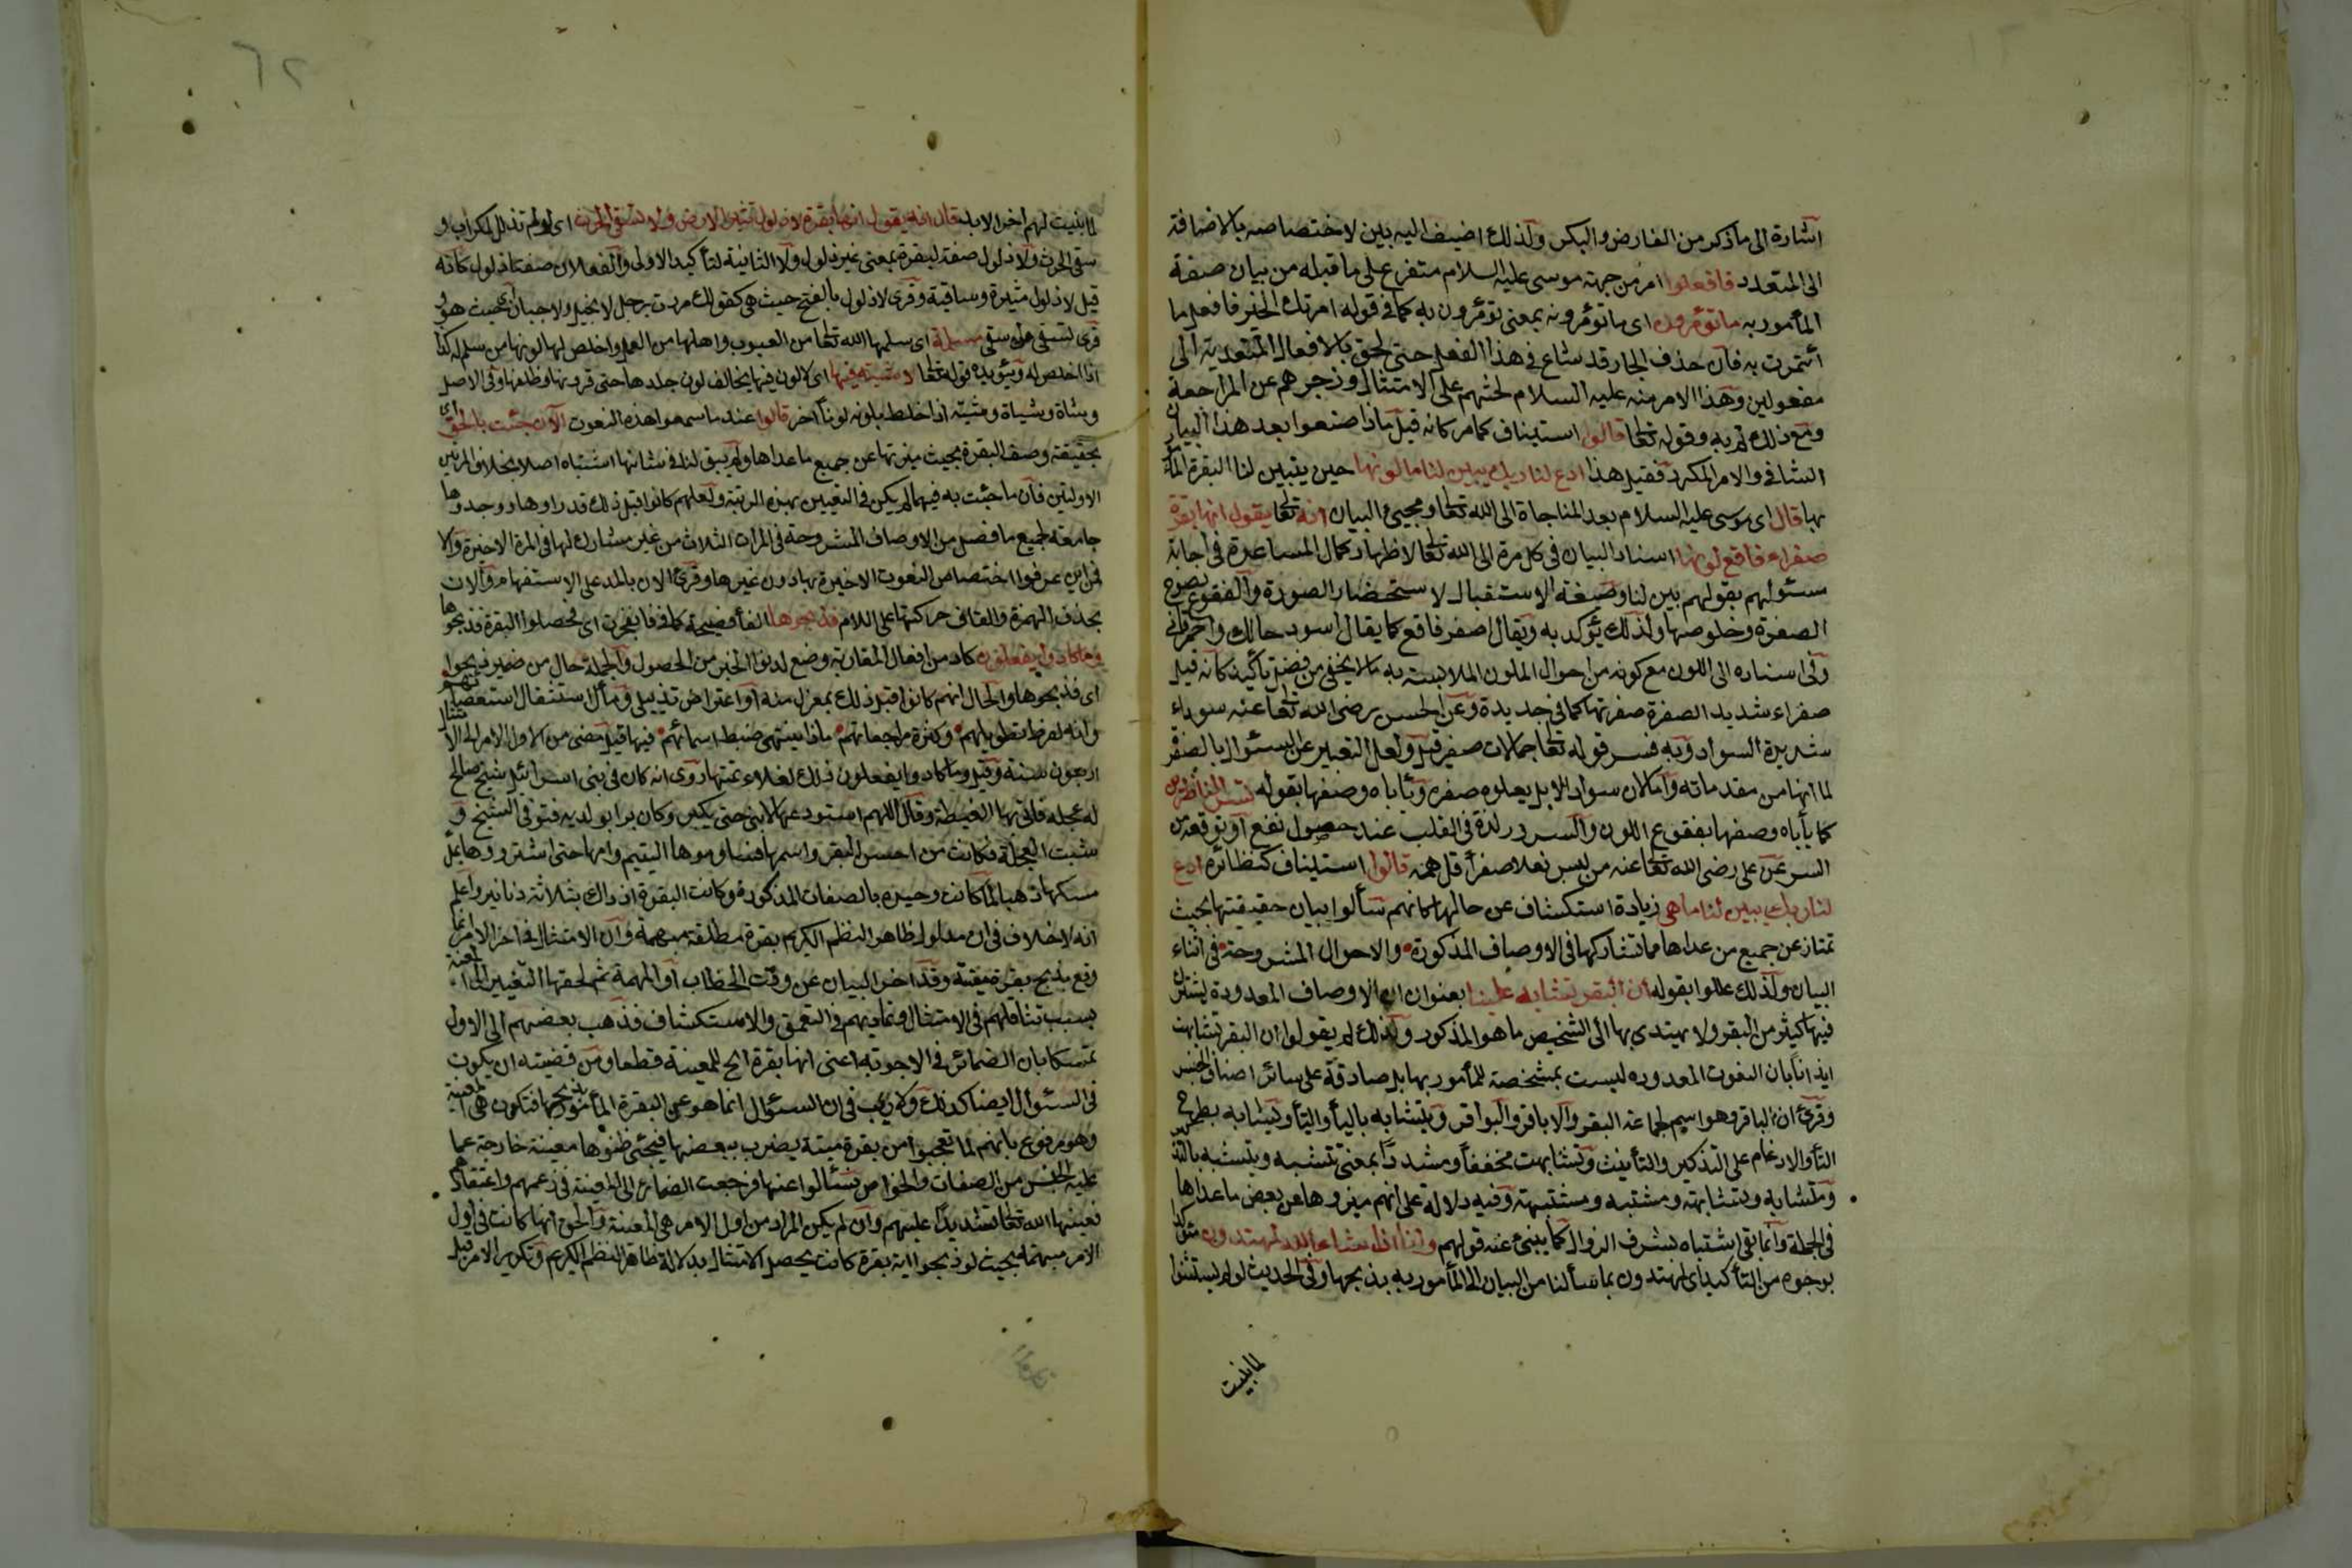 اشارة الى ما ذكر من الفارض والبكر ولذلك اضيف اليه بين لاختصاصه بالاضافة
الى المتعدد فافعلوا امر من جهة موسى عليه السلام متفرع على ما قبله من بيان صفة
المأمور به ما تؤمرون اى ما تؤمرونه بمعنى تؤمرون به كما فى قوله امرتك الخير فافعل ما
أئتمرت به فان حذف الجار قد شاع فى هذا الفعل حتى لحق بالافعال المتعدية الى
مفعولين وهذا الامر منه عليه السلام لحثهم على الامتثال وزجرهم عن المراجعة
ومع ذلك لم به وقوله تعالى قالوا استيناف كما مر كانه قيل ماذا صنعوا بعد هذا البيان
الشافى والامر المكرر فقيل هذا ادع لنا ربك يبين لنا ما لونها حين يتبين لنا البقرة المأمور
بها قال اى موسى عليه السلام بعد المناجاة الى الله تعالى ومجيئ البيان انه تعالى يقول انها بقرة
صفراء فاقع لونها اسناد البيان فى كل مرة الى الله تعالى لاظهار كمال المساعدة فى اجابة
مسئولهم بقولهم يبين لنا وصيغة الاستقبال لاستحضار الصورة والفقوع نصوع
الصفرة وخلوصها ولذلك يؤكد به ويقال اصفر فاقع كما يقال اسود حالك واحمر قانى
وفى اسناده الى اللون مع كونه من احوال الملون لملابسته به ما لا يخفى من فضل تأكيد كانه قيل
صفراء شديد الصفرة صفرتها كما فى جد جده وعن الحسن رضى الله تعالى عنه سوداء
شديدة السواد وبه فسر قوله تعالى جمالات صفر قيل ولعل التعبير عن السواد بالصفرة
لما انها من مقدماته واما لان سواد الابل يعلوه صفرة ويأباه وصفها بقوله تسر الناظرين
كما يأباه وصفها بفقوع اللون والسرور لذة فى القلب عند حصول نفع او توقعه من
السر عن على رضى الله تعالى عنه من لبس نعلا صفرأ قل همه قالوا استيناف كنظائره ادع
لنا ربك يبين لنا ما هى زيادة استكشاف عن حالها كانهم سألوا بيان حقيقتها بحيث
تمتاز عن جميع من عداها مما تشاركها فى الاوصاف المذكورة والاحوال المشروحة فى اثناء
البيان ولذلك عللوا بقوله ان البقر تشابه علينا بعنوان ان الاوصاف المعدودة يشترك
فيها كثير من البقر ولا نهتدى بها الى تشخيص ما هو المذكور ولذلك لم يقولوا ان البقرة تشابهت
ايذانا بان النعوت المعدوده ليست بمشخصة للمأمور بها بل صادقة على سائر اصناف الجنس
وقرئ ان الباقر وهو اسم لجماعة البقر والاباقر والبواقر ويتشابه بالياء والتاء ويشابه بطرح
التاء والادغام على التذكير والتأنيث وتشابهت مخففا ومشددا بمعنى تتشبه ويتشبه بالتذكير
ومتشابه ومتشابهة ومشتبه ومشتبهة وفيه دلالة على انهم ميزوها عن بعض ما عداها
فى الجملة وانما بقى اشتباه بشرف الزوال كما ينبئ عنه قولهم وانا ان شاء الله لمهتدون مؤكدا
بوجوه من التأكيد اى لمهتدون بما سألنا من البيان الى المأمور به بذبحها وفى الحديث لو لم يستثنوا
لما بينت
لما بينت لهم اخر الابد قال انه يقول انها بقرة لا ذلول تثير الارض ولا تسقى الحرث اى لم تذلل للكراب و
سقى الحرث ولا ذلول صفة لبقرة بمعنى غير ذلول ولا الثانية لتأكيد الاولى والفعلان صفتا ذلول كانه
قيل لا ذلول مثيرة وساقية وقرئ لا ذلول بالفتح حيث هى كقولك مررت برجل لا بخيل ولا جبان اى بحيث هو و
قرئ تسقى من اسقى مسلمة اى سلمها الله تعالى من العيوب واهلها من العمل واخلص لها لونها من سلم له كذا
اذا اخلص له ويؤيده قوله تعالى لا شية فيها اى لا لون فيها يخالف لون جلدها حتى قرنها وظلفها وفى الاصل
وشاه وشياة وشية اذا خلط بلونه لونا اخر قالوا عند ما سمعوا هذه النعوت الآن جئت بالحق اى
بحقيقة وصف البقرة بحيث ميزتها عن جميع ما عداها ولم يبق لنا فى شانها اشتباه اصلا بخلاف المرتين
الاوليين فان ما جئت به فيهما لم يكن فى التعيين بهذه المرتبة ولعلهم كانوا قبل ذلك قد راوها ووجدوها
جامعة لجميع ما فصل من الاوصاف المشروحة فى المرات الثلاث من غير مشارك لها فى المرة الاخيرة والا
فمن اين عرفوا اختصاص النعوت الاخيرة بها دون غيرها وقرئ الان بالمد على الاستفهام والان
بحذف الهمزة والقاء حركتها على اللام فذبحوها الفاء فصيحة كما فى فانفجرت اى فحصلوا البقرة فذبحوها
وما كادوا يفعلون كاد من افعال المقاربة وضع لدنو الخبر من الحصول والجملة حال من ضمير ذبحوا
اى فذبحوها والحال انهم كانوا قبل ذلك بمعزل منه او اعتراض تذييلى ومآله استثقال استعصائهم
وانه لفرط تطويلهم وكثرة مراجعاتهم ماذا ينتهى خيط اسهابهم فيها قيل مضى من الاول الامر الى الامتثال
اربعون سنة وقيل وما كادوا يفعلون ذلك لغلاء ثمنها روى انه كان فى بنى اسرائيل شيخ صالح
له عجلة فاتى بها الغيضة وقال اللهم استودعتكها لابنى حتى يكبر وكان برا بوالديه فتوفى الشيخ و
شبت العجلة فكانت من احسن البقر واسمنها فساوموها اليتيم وامها حتى اشتروها بملء
مسكها ذهبا لما كانت وحيدة بالصفات المذكورة وكانت البقرة اذ ذاك بثلاثة دنانير واعلم
انه لا خلاف فى ان مدلول ظاهر النظم الكريم بقرة مطلقة مبهمة وان الامتثال فى اخر الامر انما
وقع بذبح بقرة معينة وقد اخر البيان عن وقت الخطاب او المبهمة ثم لحقها التغيير الى المعينة
بسبب تثاقلهم فى الامتثال وتماديهم فى التعمق والاستكشاف فذهب بعضهم الى الاول
تمسكا بان الضمائر فى الاجوبة اعنى انها بقرة الخ للمعينة قطعا ومن قضيته ان يكون
فى السئوال ايضا كذلك ولا ريب فى ان السئوال انما هو عن البقرة المأمور بذبحها فتكون هى المعينة
وهو مرفوع بانهم لما تعجبوا من بقرة ميتة يضرب ببعضها فيحيى ظنوها معينة خارجة عما
عليه الجنس من الصفات والخواص فسئالوا عنها فرجعت الضمائر الى المعينة فى زعمهم واعتقادهم
فعينها الله تعالى تشديدا عليهم وان لم يكن المراد من اول الامر هى المعينة والحق انها كانت فى اول
الامر مبهمة بحيث لو ذبحوا اية بقرة كانت يحصل الامتثال بدلالة ظاهر النظم الكريم وتكرير الامر قبل